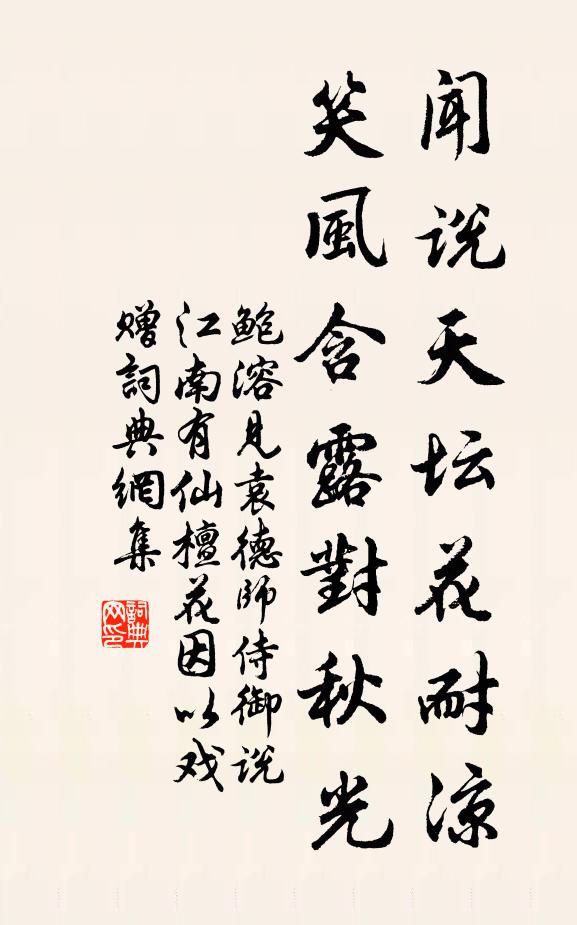 闻说天坛花耐凉
笑風含露對秋光
鲍溶见袁德師侍御说
江南有仙檀花因以戏
赠詞典網集
詞典
网印